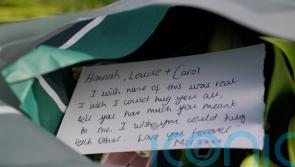 Hannah, Louise + Carol
I wish none of this was real
I wish I could hug you all,
tell you how much you meant
to me. I wish you could hug
each other. Love you forever
iconic